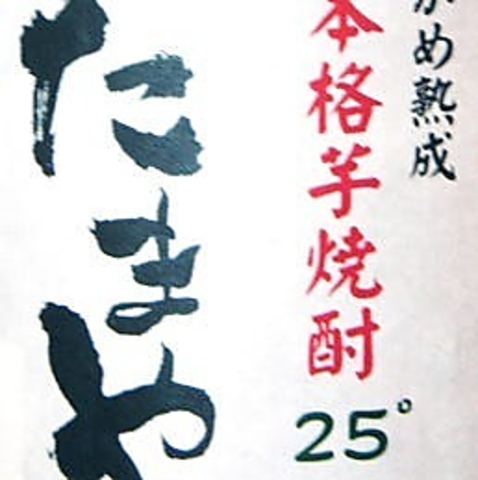 がめ熟成
本格芋焼酎
25°
たまや